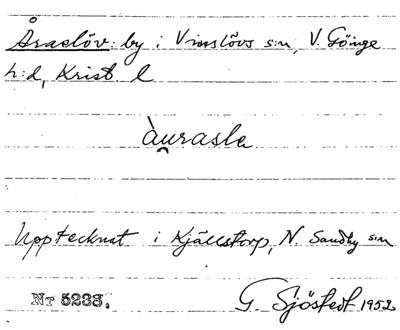 Åraslöv: by i Vinslövs s:n, V. Göinge
h:d, Krist. l
àu̯rasla
Upptecknat i Kjällstorp, N. Sandby s:n
Nr 5233.
G. Sjöstedt 1952